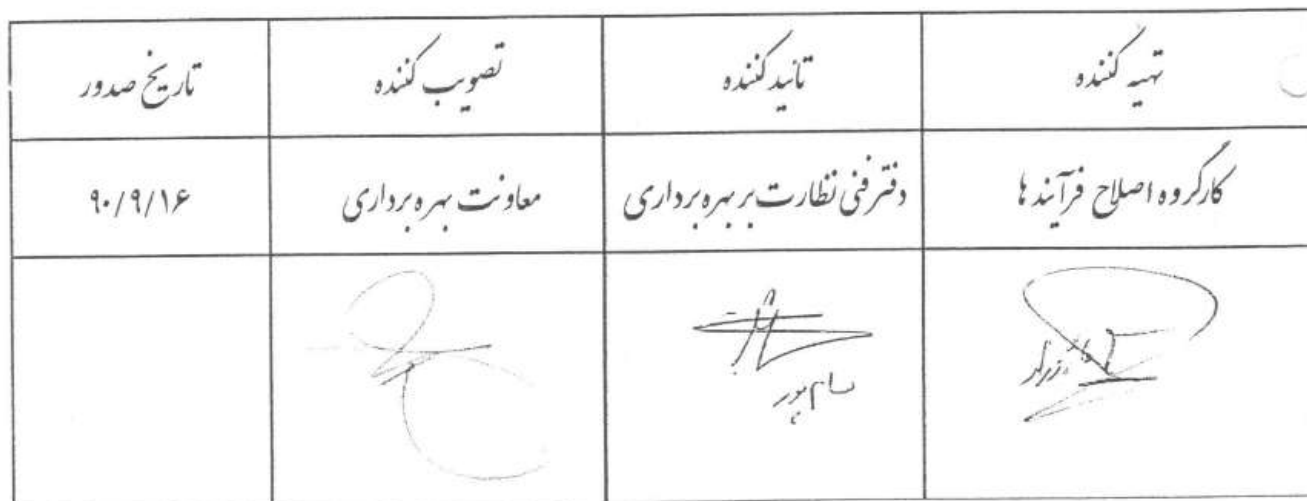 تهیه کننده
تائید کننده
تصویب کننده
تاریخ صدور
کارگروه اصلاح فرآیند ها
دفتر فنی نظارت بر بهره برداری
معاونت بهره برداری
۹۰/۹/۱۶